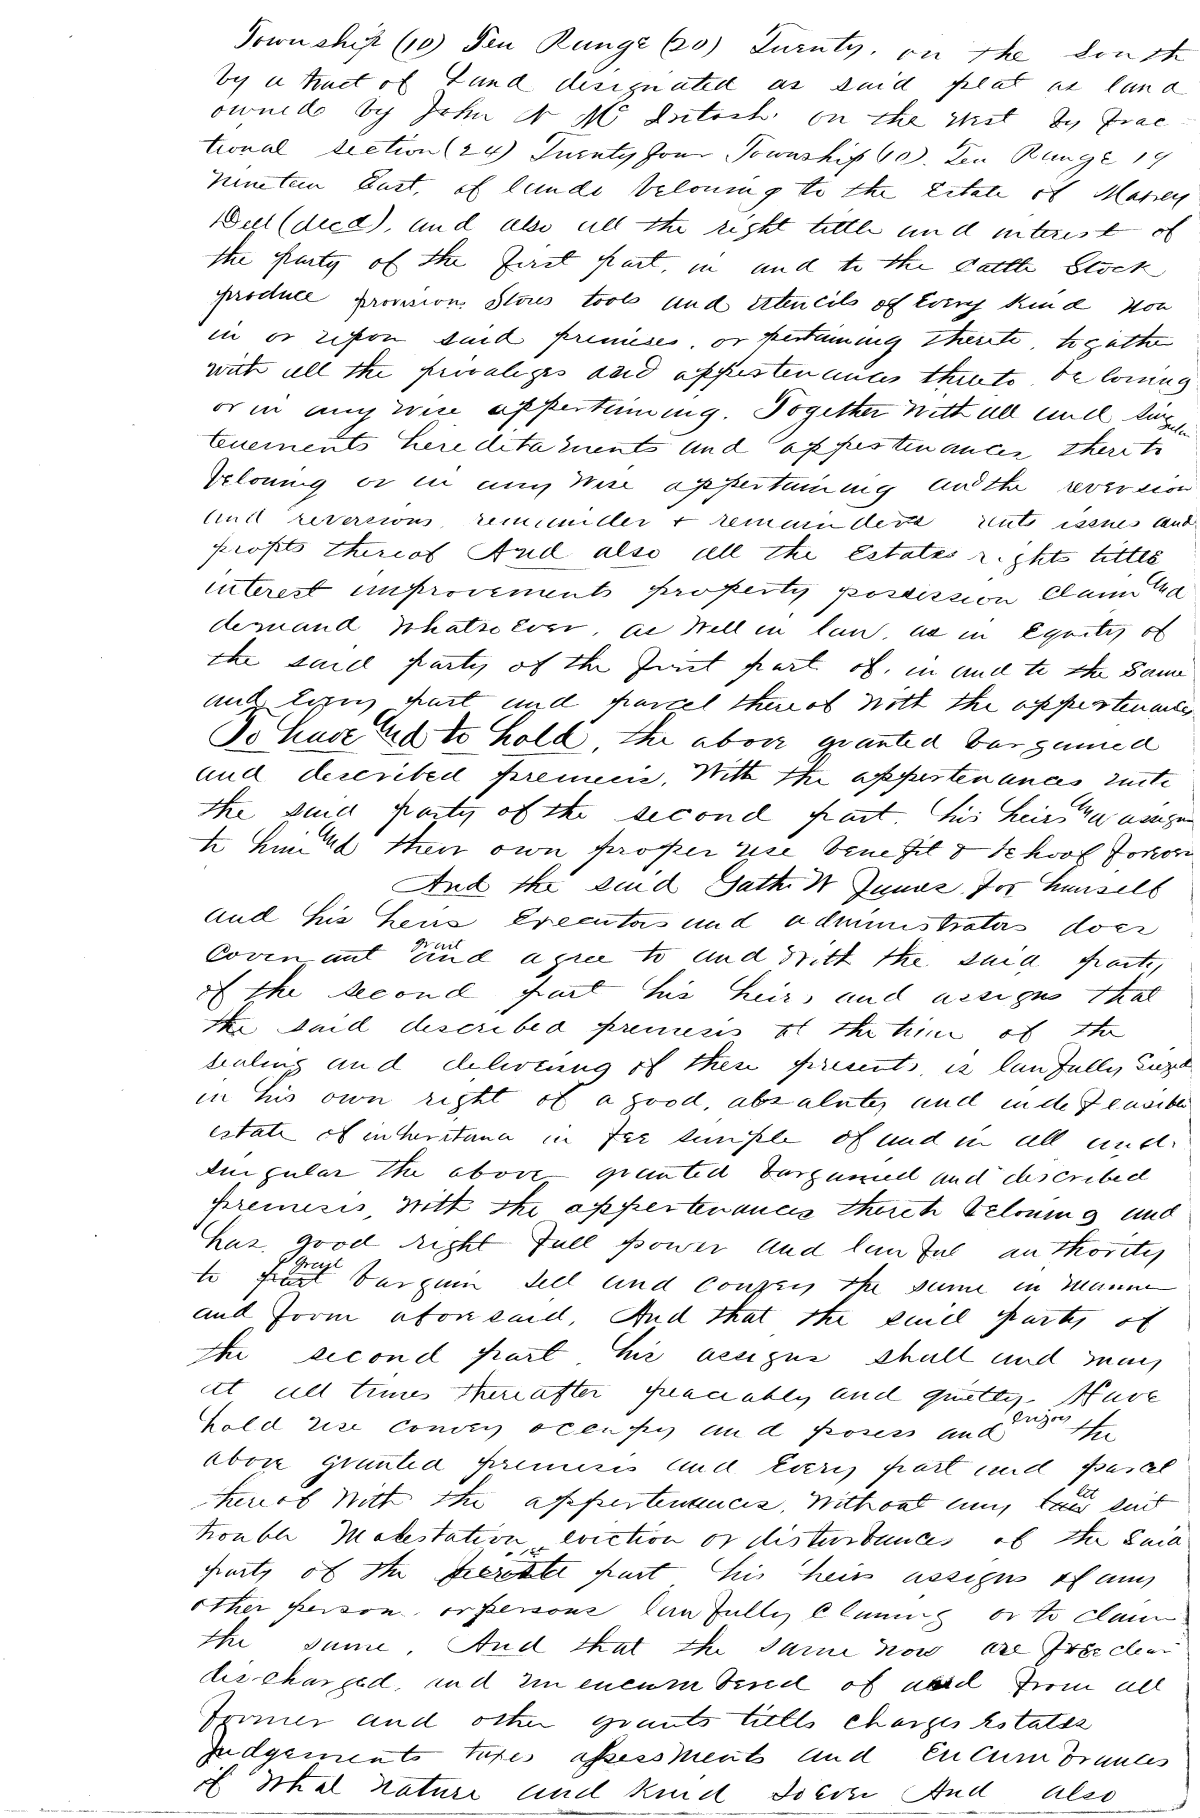 Township (10) Ten Range (20) Twenty, on the South
by a tract of Land designated as said plat as land
owned by John N McIntosh. on the West by frac-
tional section (24) Twenty four Township (10). Ten Range 19
Nineteen East, of lands belouing to the Estate of
Dell (decd), and also all the right tittle and interest of
the party of the first part, in and to the Cattle Stock
produce provisions Stores tools and utencils of Every Kind now
in or upon said premises, or pertaining thereto, togather
with all the privaleges and appertenances thereto belouing
or in any wise appertaining. Together with all and singular
tenements hereditaments and appertenances thereto
belouing or in any wise appertaining and the reversion
and reversions, remainder & remainders rents issues and
profits thereof And also all the Estates rights tittle
interest improvements property possession Claim and
demand whatsoever, as well in law, as in Equity of
the said party of the first part of, in and to the same
and Every part and parcel thereof with the appertenances
To have and to hold, the above granted bargained
and described premecis, With the appertenances unto
the said party of the second part, his heirs and assigns
to him and their own proper use benefit & behoof forever
And the said W James for himself
and his heirs Executors and administrators does
Covenant grant and agree to and with the said party
of the second part his heirs, and assigns that
the said described premesis at the time of the
sealing and delivering of these presents, is lawfully Siezed
in his own right of a good, absalutey and indefeasible
estate of inheritance in fee simple of and in all and
singular the above granted bargained and described
premesis, with the appertenances thereto belouing and
has good right full power and lawful authority
to grant bargain sell and convey the same in manner
and form aforesaid, And that the said party of
the second part, his assigns shall and may
at all times thereafter peaceably and quietly. Have
hold use convey occupy and posess and enjoy the
above granted premesis and Every part and parcel
thereof With the appertenances, Without any let suit
trouble Molestation eviction or disturbances of the Said
party of the first part, his heirs assigns of any
other person, or persons lawfully Claming or to claim
the same, And that the same now are free clear
discharged, and unencumbered of and from all
former and other grants tittls charges Estates
Judgements taxes assessments and Encumbrances
of What nature and Kind soever And also